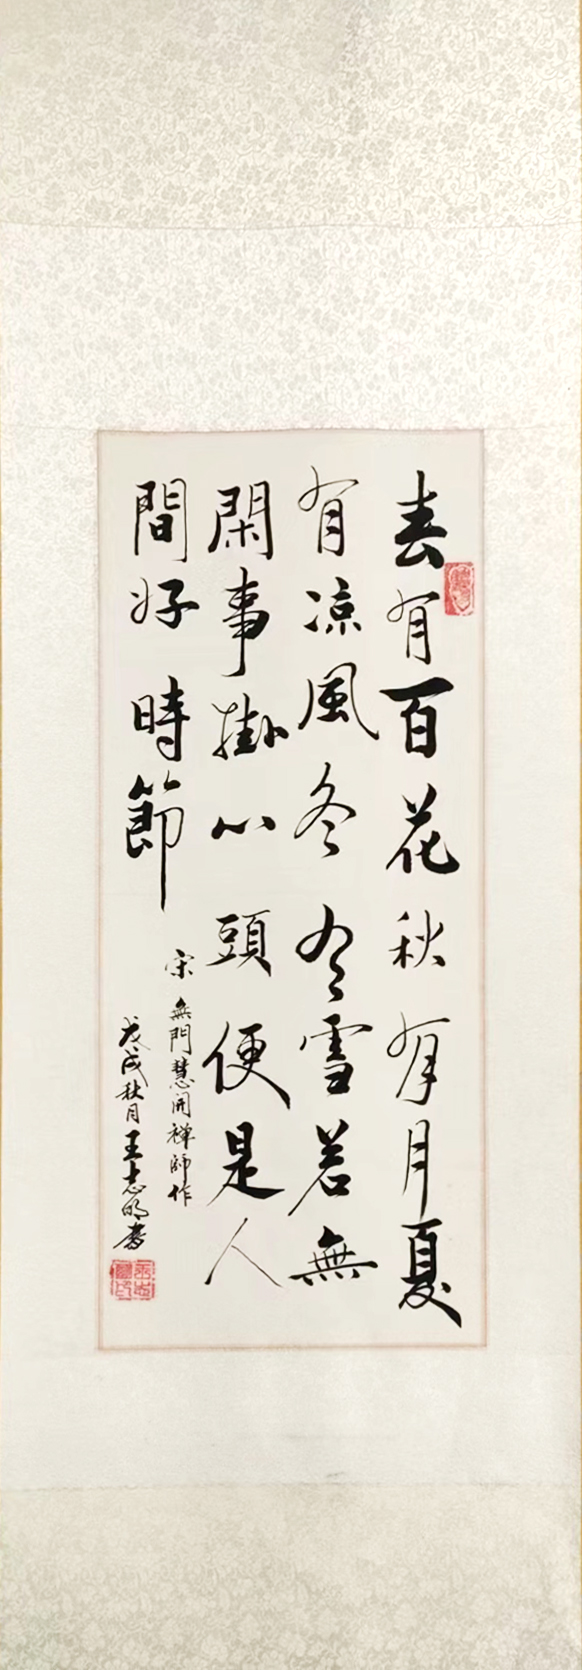 春有百花秋有月夏
有凉風冬有雪若無
閑事掛心頭便是人
間好時節
宋 無門慧開禪師作
戊戌秋月王志明書